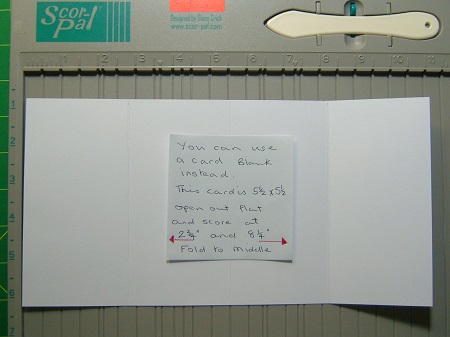 SCOR-
PAL
Designed by Diana Crick
www.scor-pal.com
1 2 3 4 5 6 7 8 9 10 11
1
2
3
4
5
You can use
a card Blank
instead.
This card is 5½ x 5½
open out flat
and score at
2¾" and 8¼"
Fold to middle